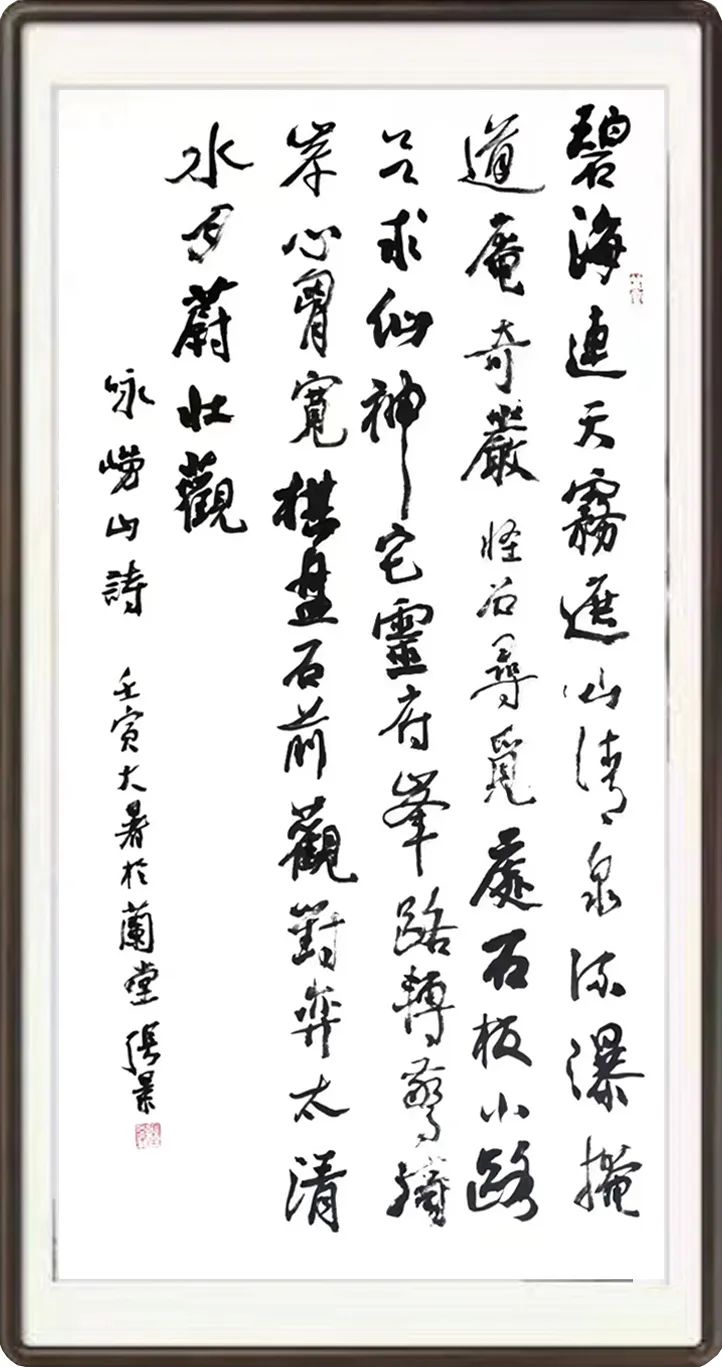 碧海連天霧遮山清泉流瀑掩
道庵奇巖怪石尋覓處石板小路
求仙神宅靈府峯路轉驚濤
岸心胸寬棋盤石前觀對弈太清
水月蔚壯觀
咏嶗山詩 壬寅大暑於蘭堂 張景